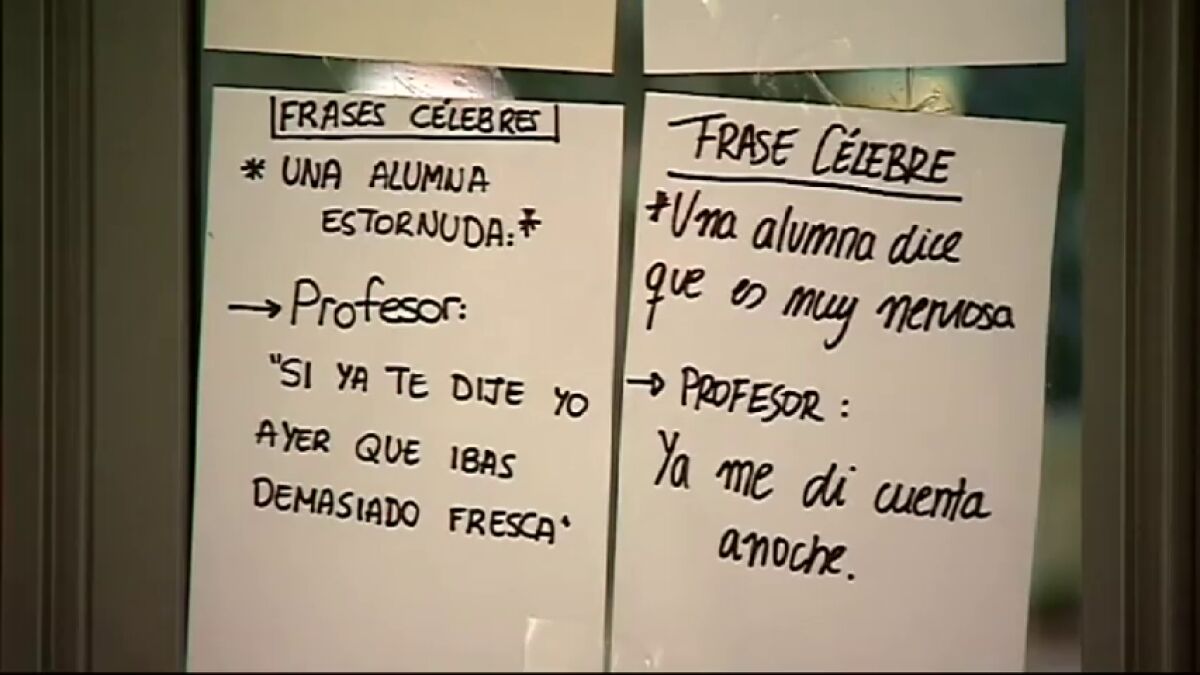 FRASES CÉLEBRES
* UNA ALUMNA
ESTORNUDA:*
→ Profesor:
"SI YA TE DIJE YO
AYER QUE IBAS
DEMASIADO FRESCA"
FRASE CÉLEBRE
*Una alumna dice
que es muy nerviosa
→ PROFESOR:
Ya me di cuenta
anoche.